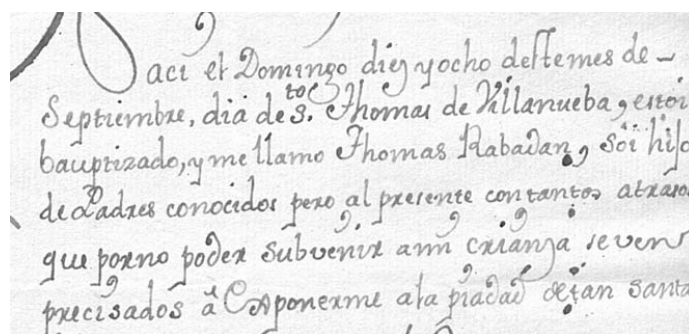 Naci el Domingo diez yocho deste mes de
Septiembre, dia de S.to Thomas de Villanueba, estoi
bauptizado, y me llamo Thomas Rabadan, soi hijo
de Padres conocidos pero al presente con tantos atrasos
que por no poder subvenir a mi crianza se ven
precisados â Exponerme a la piadad de tan santa